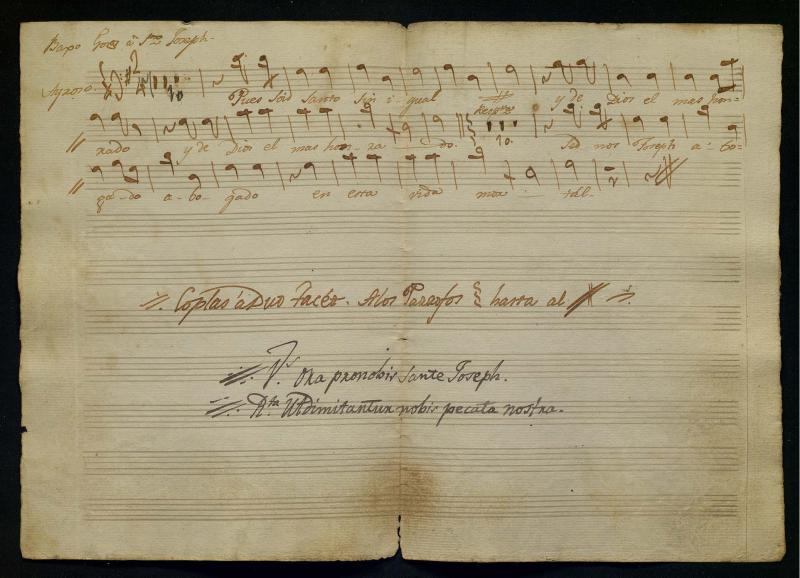 Baxo Gozos â Sn Joseph.
Ayroso. 10.
Pues Sois Santo sin i-gual Respta y de Dios el mas hon-
rado y de Dios el mas hon-ra-do. 10. Sed nos Joseph a-bo-
ga-do a-bo-gado en esta vida mor-tal. 2
Coplas â Duo Tacet. A los Parrafos hasta al
Vr. Ora pronobis Sante Joseph.
Rta. Utdimitantur nobis pecata nostra.